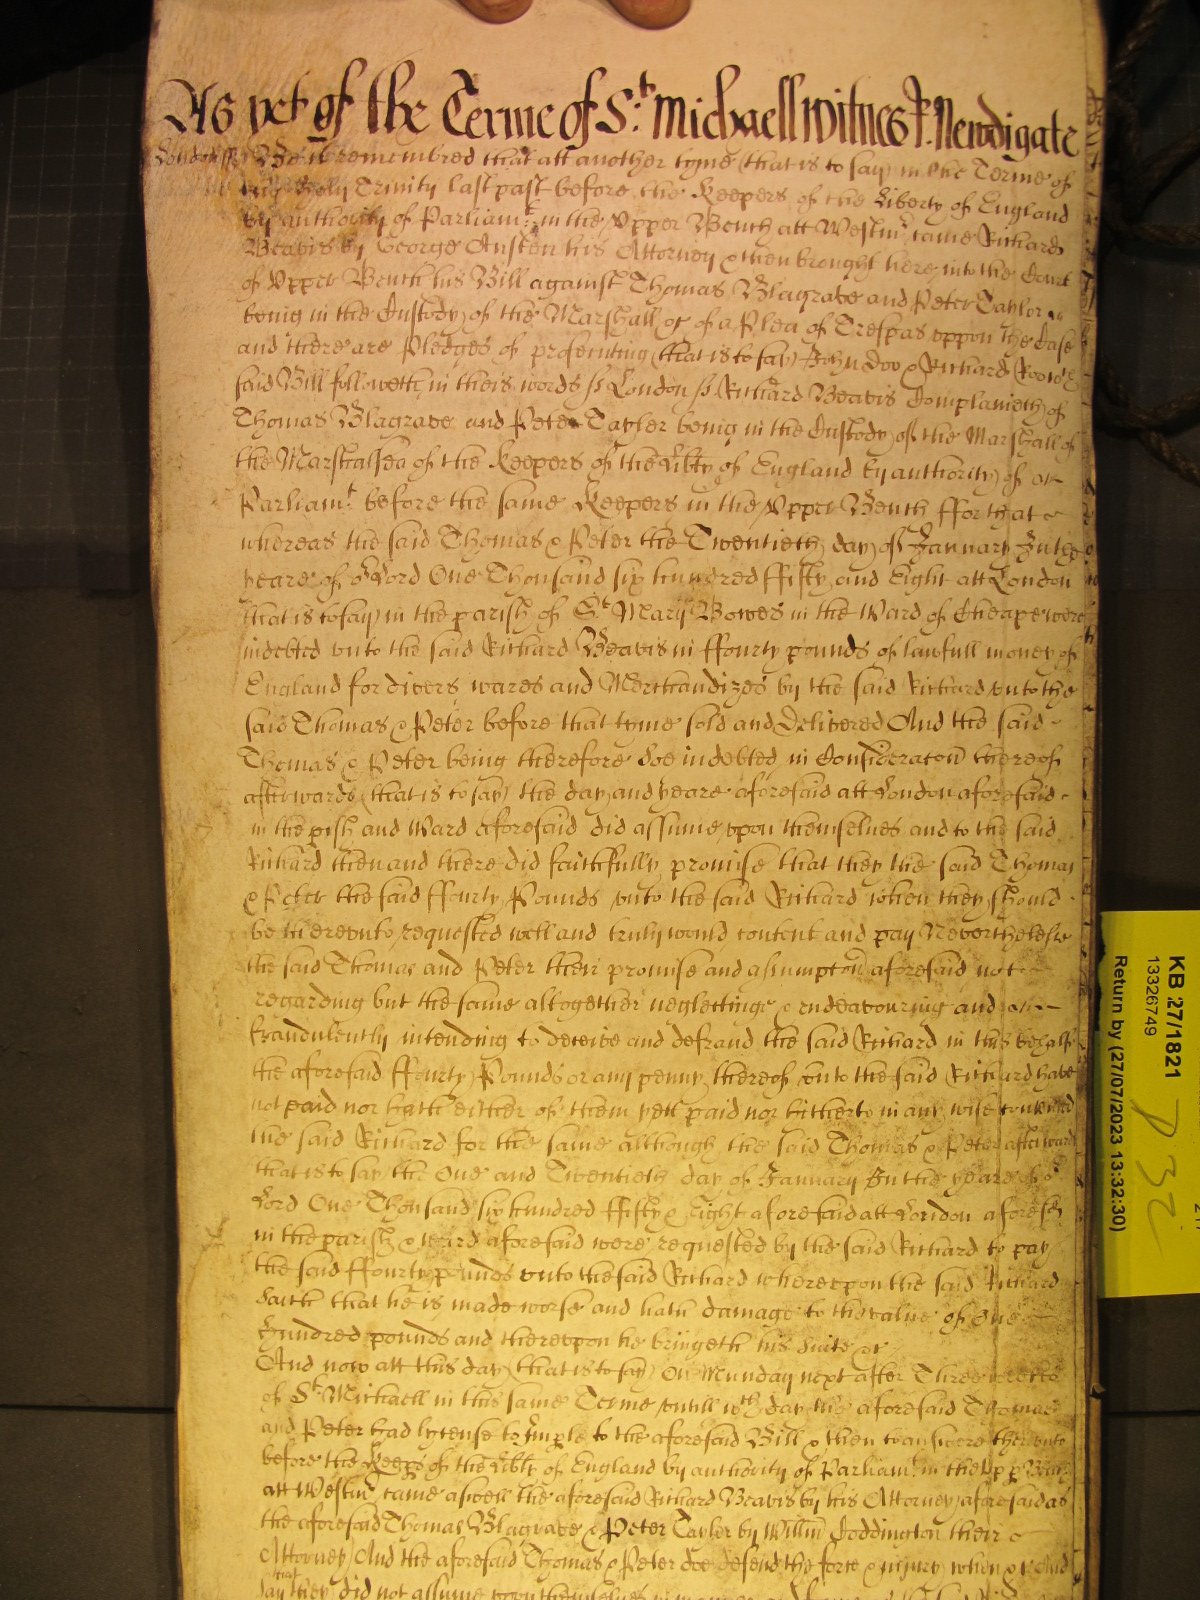 As yet of the Terme of St. Michaell Witnes R. Newdigate
London ss Be it remembred that att another tyme (that is to say) in the Terme of
the Holy Trinity last past before the Keepers of the Liberty of England
by authority of Parliamt. in the Upper Bench att Westmr. came Richard
Beavis by George Austen his Attorney & then brought here into the Court
of Upper Bench his Bill against Thomas Blagrave and Peter Taylor
being in the Custody of the Marshall &c of a Plea of Trespas uppon the Case
and there are Pledges of prosecuting (that is to say) John Doo & Richard Roo which
said Bill followeth in theis words ss London ss Richard Beavis Complaineth of
Thomas Blagrave and Peter Tayler being in the Custody of the Marshall of
the Marshalsea of the Keepers of the Libty of England by authority of
Parliamt. before the same Keepers in the Upper Bench ffor that
whereas the said Thomas & Peter the Twentieth day of January In the
yeare of or Lord One Thousand six hundred ffifty and Eight att London
that is to say in the parish of St. Mary Bowes in the Ward of Cheape were
indebted unto the said Richard Beavis in ffourty pounds of lawfull money of
England for divers wares and Merchandizes by the said Richard unto the
said Thomas & Peter before that tyme sold and Delivered And the said
Thomas & Peter being therefore soe indebted in Consideracon thereof
afterwards (that is to say) the day and yeare aforesaid att London aforesaid
in the pish and Ward aforesaid did assume upon themselves and to the said
Richard then and there did faithfully promise that they the said Thomas
& Peter the said ffourty Pounds unto the said Richard when they should
be thereunto requested well and truly would content and pay Neverthelesse
the said Thomas and Peter their promise and assumpton aforesaid not
regarding but the same altogether neglecting & endeavouring and
fraudulently intending to deceive and defraud the said Richard in this behalf
the aforesaid ffourty Pounds or any penny thereof unto the said Richard have
not paid nor hath either of them yett paid nor hitherto in any wise contented
the said Richard for the same although the said Thomas & Peter afterward
that is to say the One and Twentieth day of January In the yeare of or
Lord One Thousand six hundred ffifty & Eight aforesaid att London aforesd
in the parish & ward aforesaid were requested by the said Richard to pay
the said ffourty pounds unto the said Richard whereupon the said Richard
saith that he is made worse and hath damage to the value of One
Hundred pounds and thereupon he bringeth his suite &c
And now att this day (that is to say) On Munday next after Three weekes
of St. Michaell in this same Terme untill wch day the aforesaid Thomas
and Peter had lycense to Imple to the aforesaid Bill & then to answere thereunto
before the Keeps of the Libty of England by authority of Parliamt. in the Upp Bench
att Westmr. came aswell the aforesaid Richard Beavis by his Attorney aforesaid as
the aforesaid Thomas Blagrave & Peter Taylor by Willm Doddington their
Attorney And the aforesaid Thomas & Peter doe defend the force & injury when &c And
say that they did not assume upon themselves in manner and forme
KB 27/1821
13326749
Return by (27/07/2023 13:32:30)